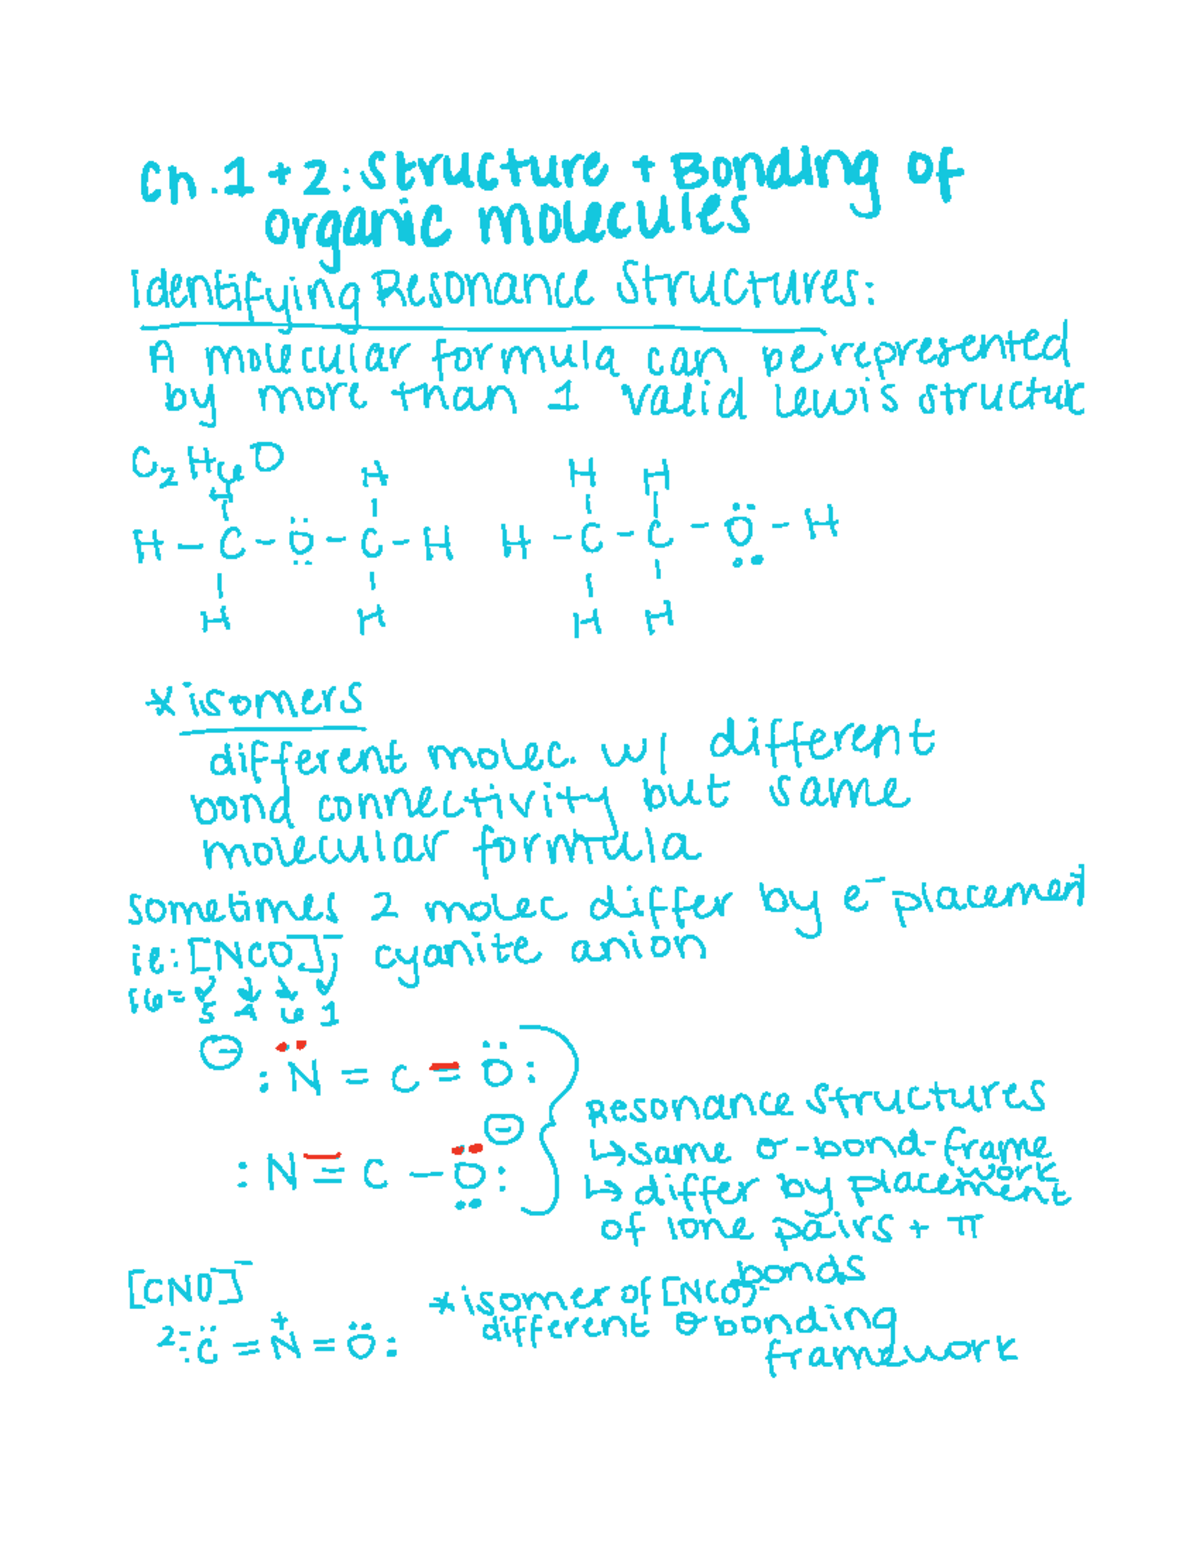 Ch.1 + 2: Structure + Bonding of
organic molecules
Identifying Resonance Structures:
A molecular formula can be represented
by more than 1 valid Lewis structur
C₂H₆O
H H H H
H – C – Ö – C – H H – C – C – Ö – H
H H H H
* isomers
different molec. w/ different
bond connectivity but same
molecular formula
sometimes 2 molec differ by e⁻ placement
ie: [NCO]⁻, cyanite anion
16 = 5 4 6 1
⊖ :N̈ = C = Ö:
Resonance Structures
⊖
↳ same σ-bond-frame
work
:N ≡ C – Ö:
↳ differ by placement
of lone pairs + π
bonds
[CNO]⁻
* isomer of [NCO]⁻
different σ bonding
framework
2- :C̈ = N⁺ = Ö: